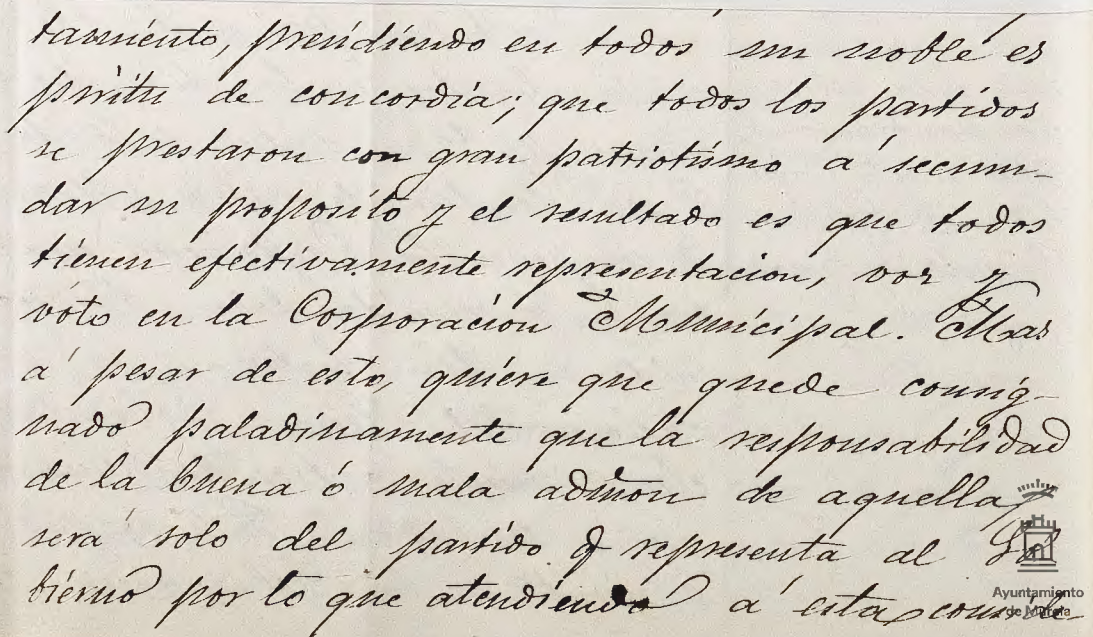 tamiento, presidiendo en todos un noble es
píritu de concordia; que todos los partidos
se prestaron con gran patriotismo á secun-
dar su proposito y el resultado es que todos
tienen efectivamente representacion, voz y
voto en la Corporacion Municipal. Mas
á pesar de esto, quiere que quede consig-
nado paladinamente que la responsabilidad
de la buena ó mala admon de aquella,
será solo del partido q representa al Go
bierno por lo que atendiendo á esta conside
Ayuntamiento
de Murcia